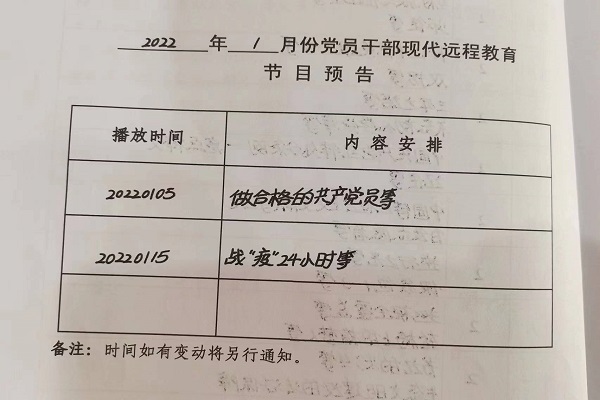 2022 年 1 月份党员干部现代远程教育
节目预告
播放时间 内容安排
20220105 做合格的共产党员等
20220115 战"疫"24小时等
备注：时间如有变动将另行通知。